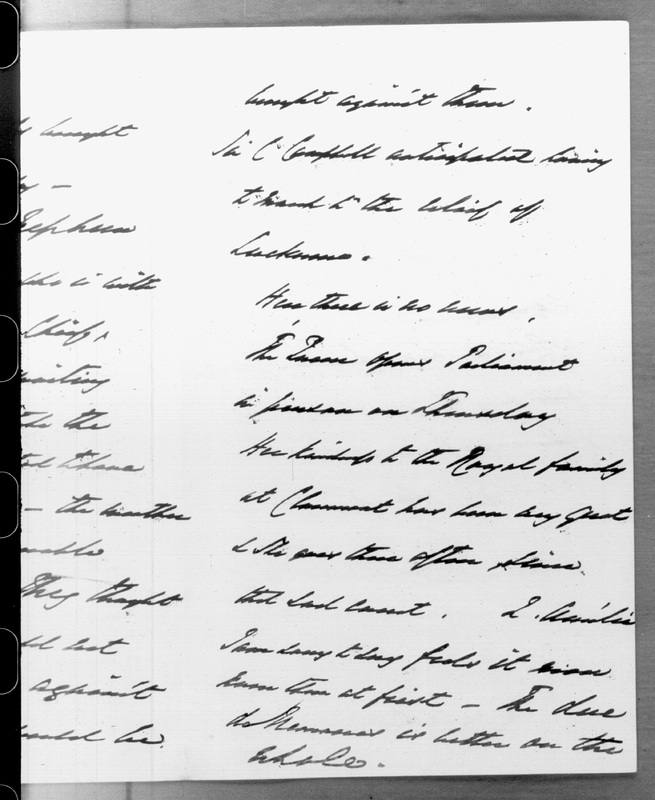 brought
—
Nephew
who is with
Chief,
waiting
the
to have
— the weather
They thought
last
against
would be
brought against them.
Sir C Campbell anticipated having
to march to the relief of
Lucknow.
Here there is no news.
The Queen opens Parliament
in person on Thursday
Her kindness to the Royal family
at Claremont has been very great
& She goes there often since
that sad event. Q. Amélie
I am sorry to say feels it more
than at first — The duc
de Nemours is better on the
whole.